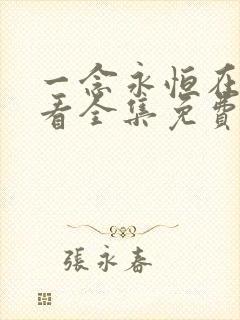 一念永恒在
看全集免費
張永春